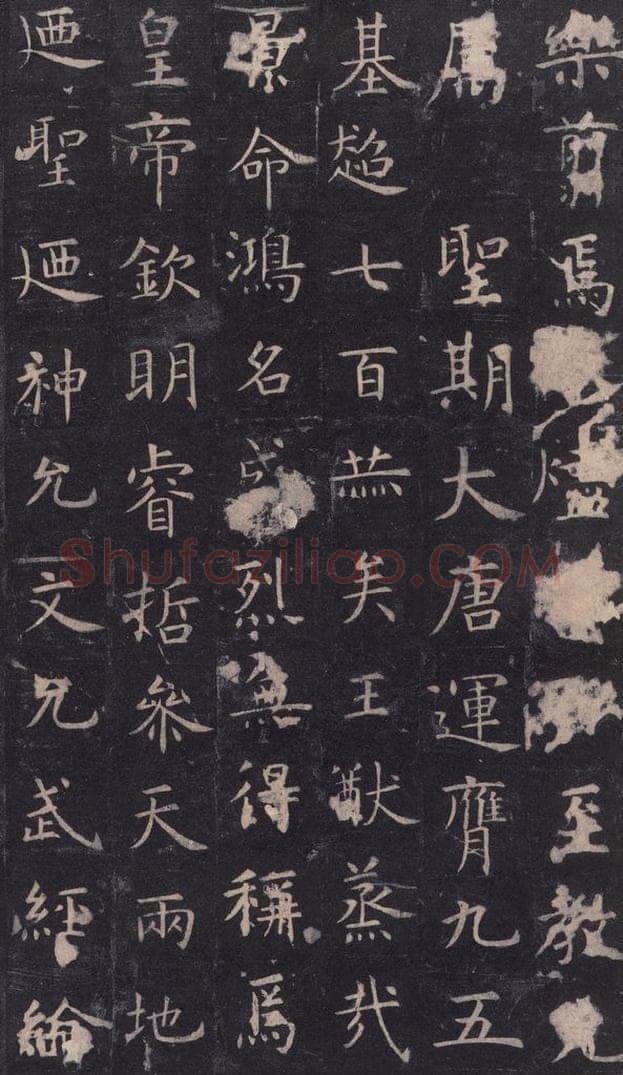 樂焉至教
屬聖期大唐運膺九五
基超七百赫矣王猷蒸哉
景命鴻名烈無得稱焉
皇帝欽明睿哲參天兩地
廼聖廼神允文允武經綸
Shufaziliao.COM